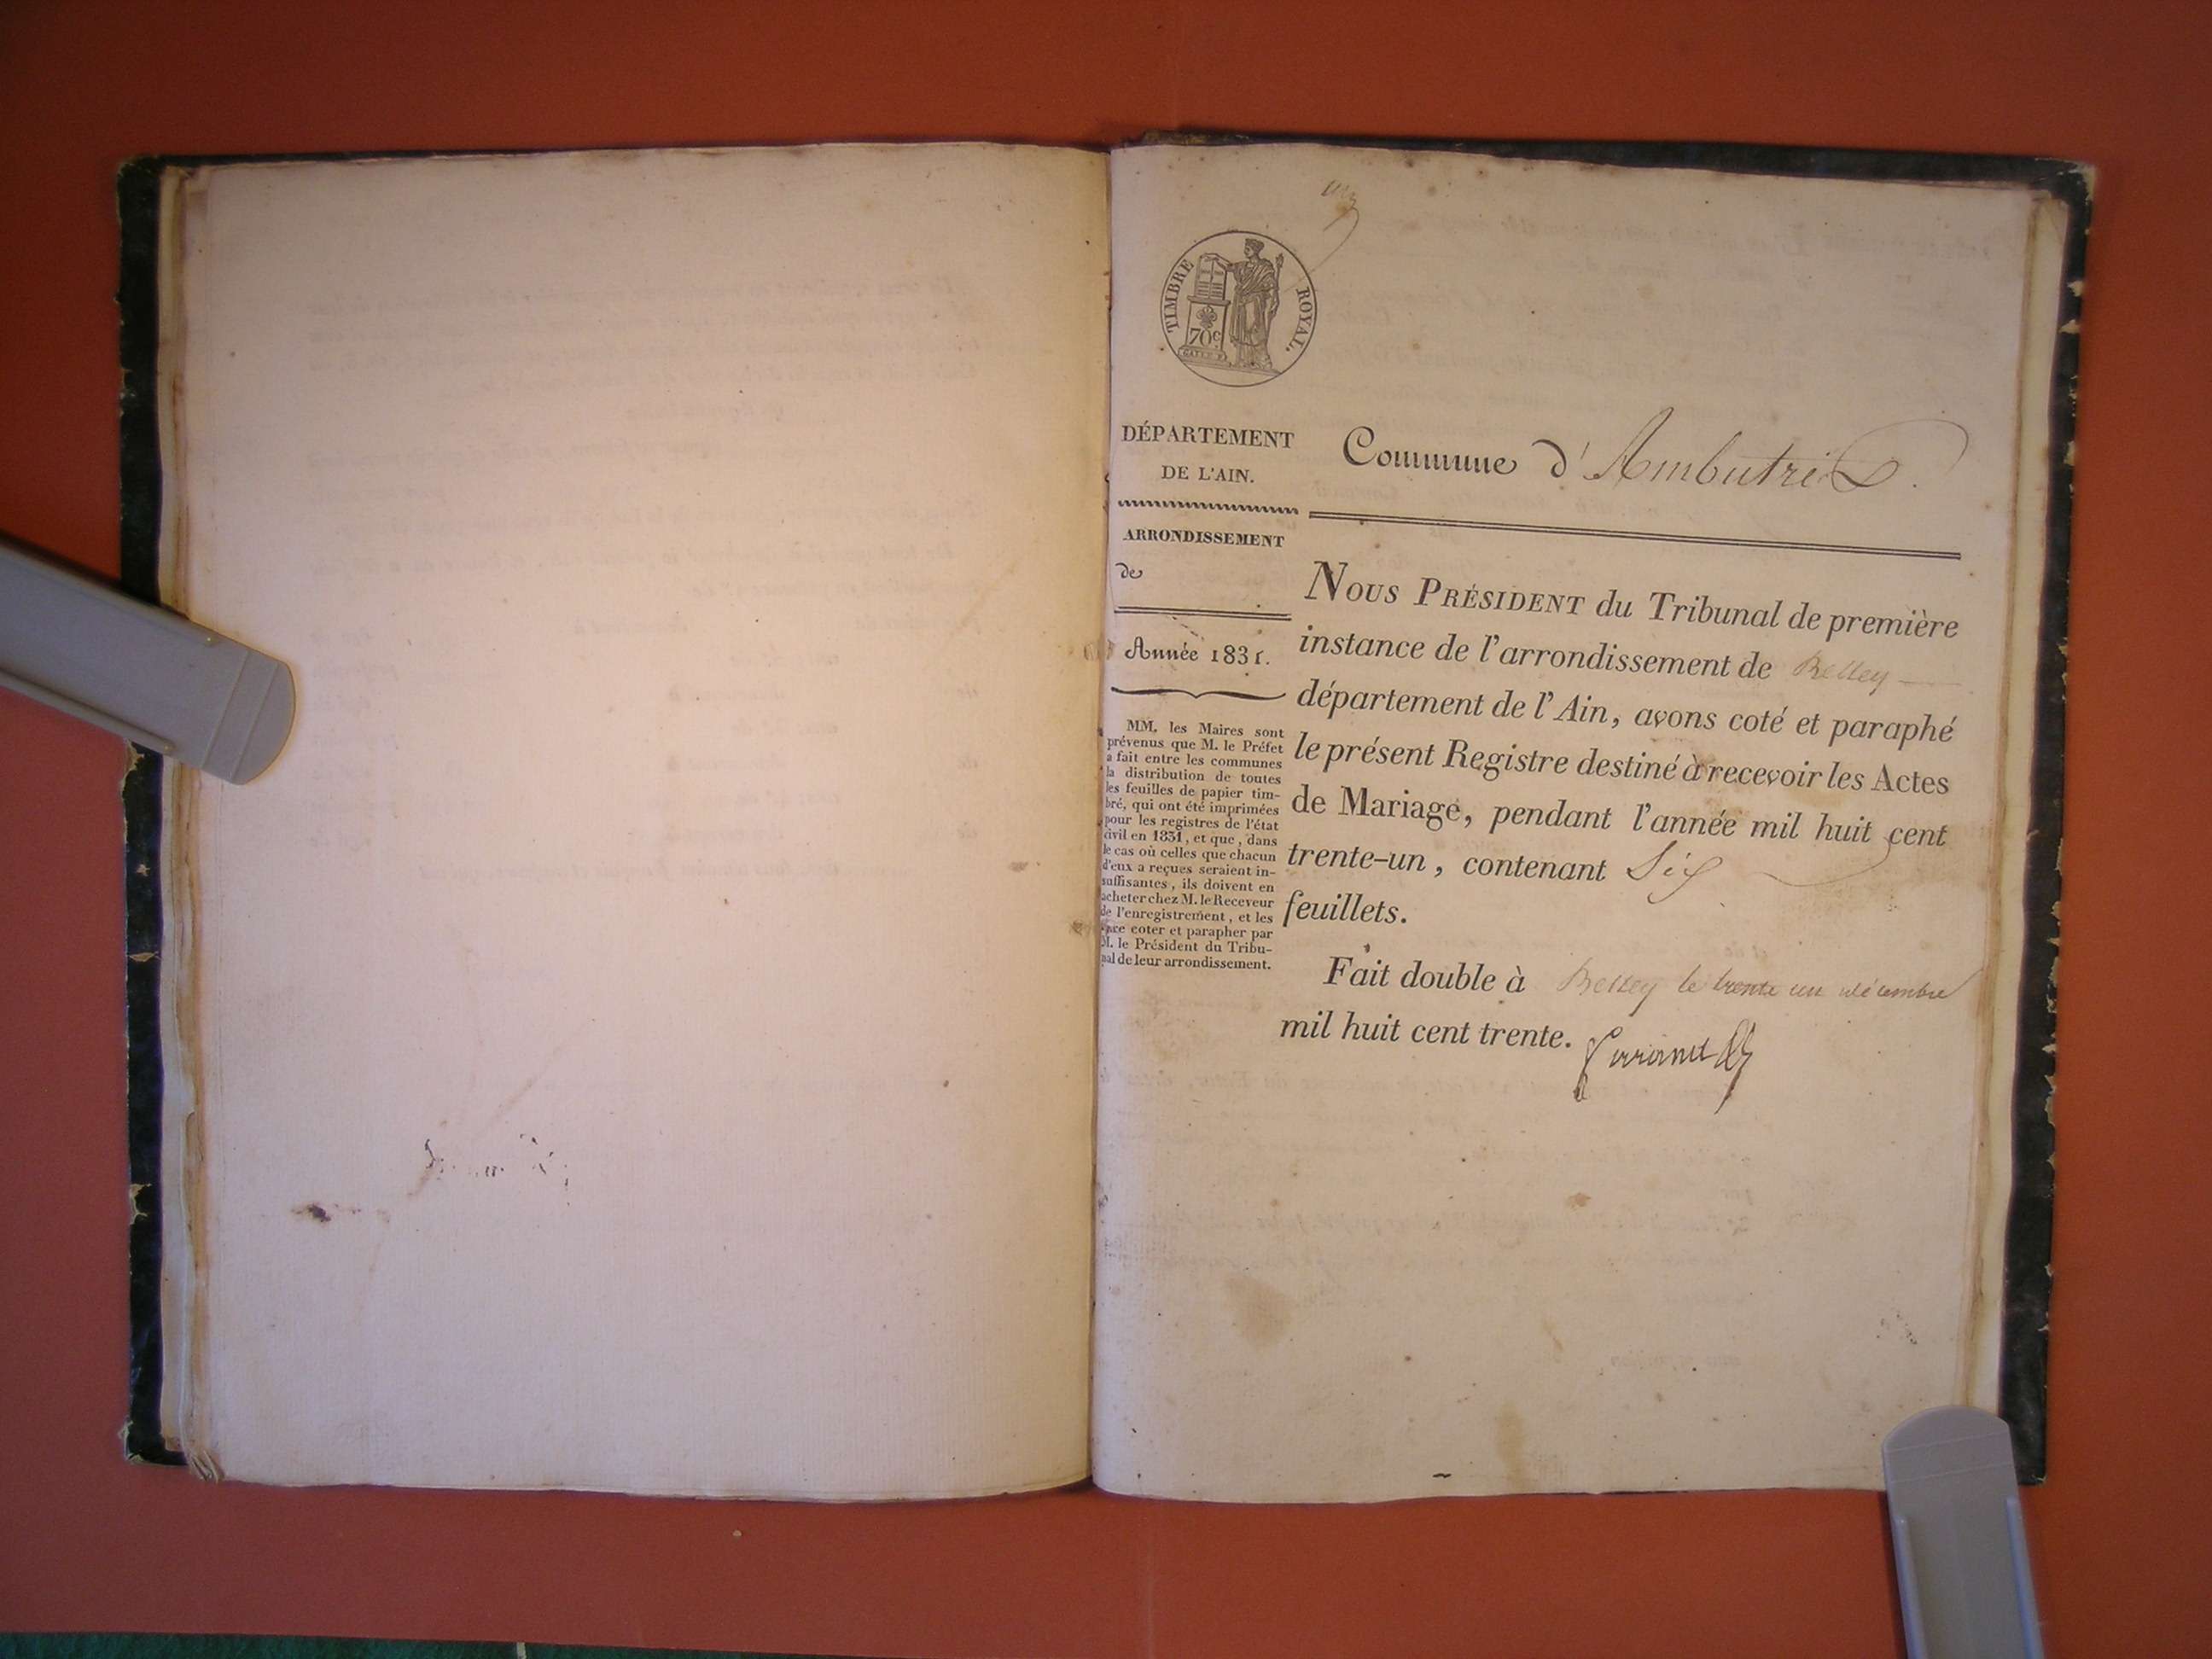 TIMBRE ROYAL.
70c
DÉPARTEMENT
DE L'AIN.
ARRONDISSEMENT
de
Année 1831.
MM. les Maires sont
prévenus que M. le Préfet
a fait entre les communes
la distribution de toutes
les feuilles de papier tim-
bré, qui ont été imprimées
pour les registres de l'état
civil en 1831, et que, dans
le cas où celles que chacun
d'eux a reçues seraient in-
suffisantes, ils doivent en
acheter chez M. le Receveur
de l'enregistrement, et les
faire coter et parapher par
M. le Président du Tribu-
nal de leur arrondissement.
Commune d'Ambutrix.
NOUS PRÉSIDENT du Tribunal de première
instance de l'arrondissement de Belley
département de l'Ain, avons coté et paraphé
le présent Registre destiné à recevoir les Actes
de Mariage, pendant l'année mil huit cent
trente-un, contenant Six
feuillets.
Fait double à Belley le trente un décembre
mil huit cent trente.